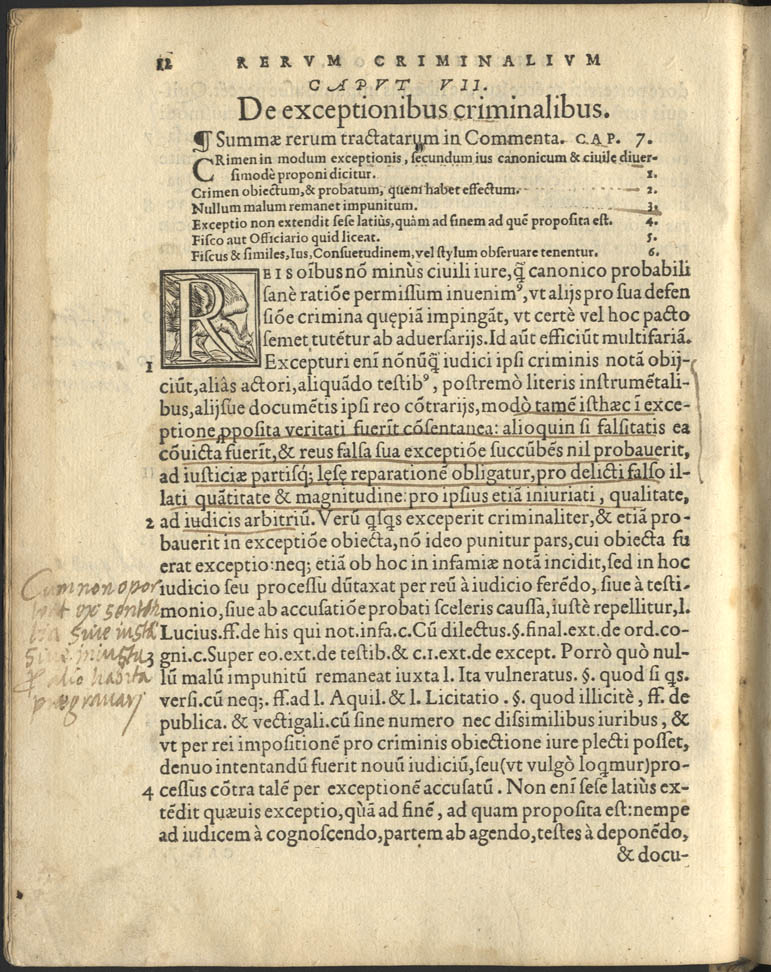 12 RERVM CRIMINALIVM
CAPVT VII.
De exceptionibus criminalibus.
¶ Summæ rerum tractatarum in Commenta. CAP. 7.
CRimen in modum exceptionis, ſecundum ius canonicum & ciuile diuer-
ſimodè proponi dicitur. 1.
Crimen obiectum, & probatum, quem habet effectum. 2.
Nullum malum remanet impunitum. 3.
Exceptio non extendit ſeſe latiùs, quàm ad finem ad quē propoſita eſt. 4.
Fiſco aut Officiario quid liceat. 5.
Fiſcus & ſimiles, Ius, Conſuetudinem, vel ſtylum obſeruare tenentur. 6.
REIS oībus nō minùs ciuili iure, q̄ canonico probabili
ſanè ratiōe permiſſum inuenimꝰ, vt alijs pro ſua defen
ſiōe crimina quępiā impingāt, vt certè vel hoc pacto
ſemet tutētur ab aduerſarijs. Id aūt efficiūt multifariā.
1 Excepturi enī nōnūq̄ iudici ipſi criminis notā obij-
ciūt, aliàs actori, aliquādo teſtibꝰ, poſtremò literis inſtrumētali-
bus, alijſue documētis ipſi reo cōtrarijs, modò tamē iſthæc ī exce-
ptione ꝓpoſita veritati fuerīt cōſentanea: alioquin ſi falſitatis ea
cōuicta fuerīt, & reus falſa ſua exceptiōe ſuccūbēs nil probauerit,
ad iuſticiæ partiſq; lęſę reparationē obligatur, pro delicti falſo il-
lati quātitate & magnitudine: pro ipſius etiā iniuriati, qualitate,
2 ad iudicis arbitriū. Verū qſqs exceperit criminaliter, & etiā pro-
bauerit in exceptiōe obiecta, nō ideo punitur pars, cui obiecta fu
erat exceptio: neq; etiā ob hoc in infamiæ notā incidit, ſed in hoc
iudicio ſeu proceſſu dūtaxat per reū à iudicio ferēdo, ſiue à teſti-
monio, ſiue ab accuſatiōe probati ſceleris cauſſa, iuſtè repellitur, l.
Lucius. ff. de his qui not. infa. c. Cū dilectus. §. final. ext. de ord. co-
3 gni. c. Super eo. ext. de teſtib. & c. 1. ext. de except. Porrò quò nul-
lū malū impunitū remaneat iuxta l. Ita vulneratus. §. quod ſi qs.
verſi. cū neq;. ff. ad l. Aquil. & l. Licitatio. §. quod illicitè, ff. de
publica. & vectigali. cū ſine numero nec diſsimilibus iuribus, &
vt per rei impoſitionē pro criminis obiectione iure plecti poſſet,
denuo intentandū fuerit nouū iudiciū, ſeu (vt vulgò loqmur) pro-
ceſſus cōtra talē per exceptionē accuſatū. Non enī ſeſe latiùs ex-
4 tēdit quæuis exceptio, qùā ad finē, ad quam propoſita eſt: nempe
ad iudicem à cognoſcendo, partem ab agendo, teſtes à deponēdo,
& docu-
Cum non opor
tet ex senten
tia siue iusta
siue iniusta
alio habita
prægrauarj